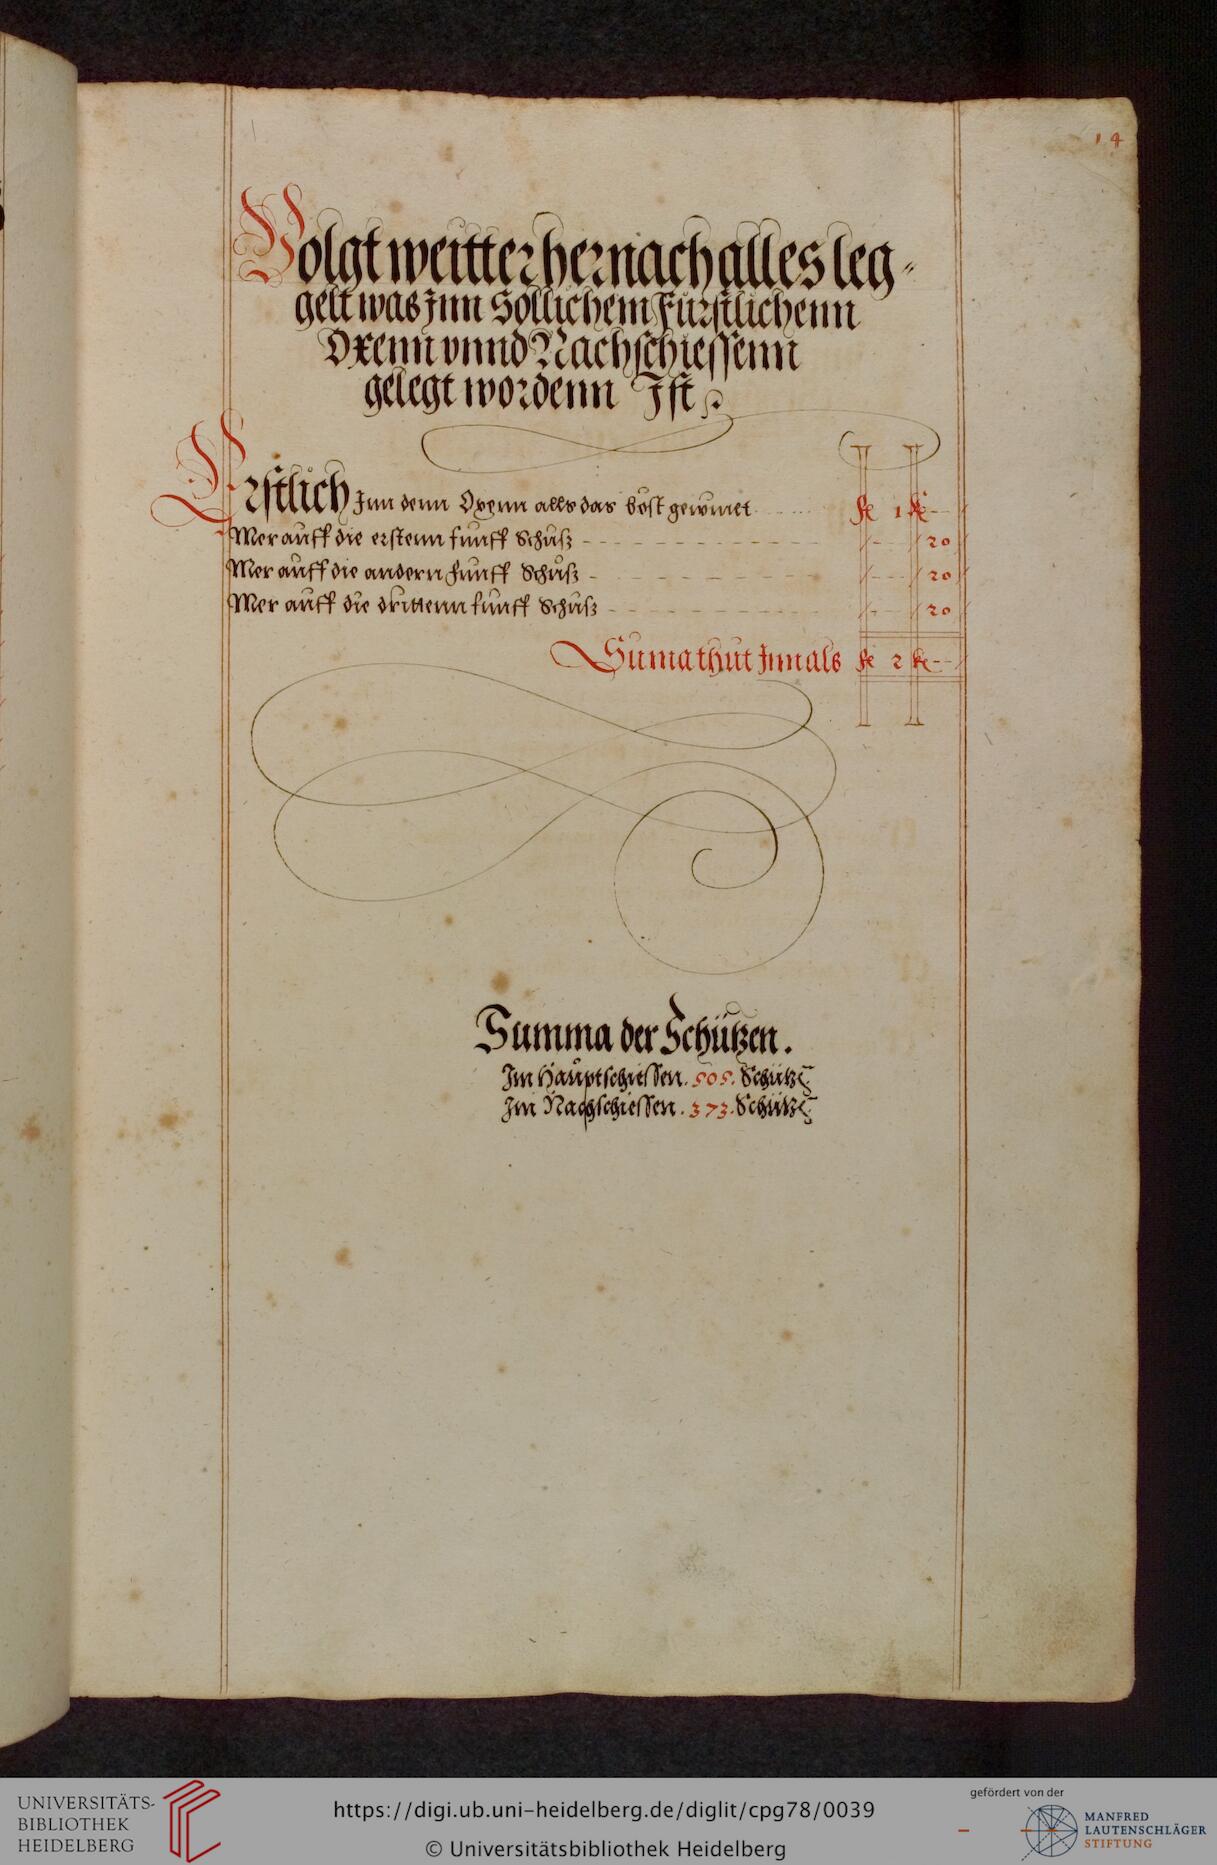 14
Volgt weitter hernach alles leg-
gelt was Jnn Sollichem Fürstlichenn
Oxenn vnnd Nachschiessenn
gelegt wordenn Jst
Erstlich Jnn denn Oxenn alls das bost gewinet fl 1 k --
Mer auff die erstenn funff Schuß - - 20
Mer auff die andern funff Schuß - - 20
Mer auff die drittenn funff Schuß - - 20
Suma thut Jnn als fl 2 k --
Summa der Schützen.
Im Hauptschiessen. 505. Schütz
Im Nachschiessen. 373. Schütz
UNIVERSITÄTS-
BIBLIOTHEK
HEIDELBERG
https://digi.ub.uni-heidelberg.de/diglit/cpg78/0039
© Universitätsbibliothek Heidelberg
gefördert von der
MANFRED
LAUTENSCHLÄGER
STIFTUNG